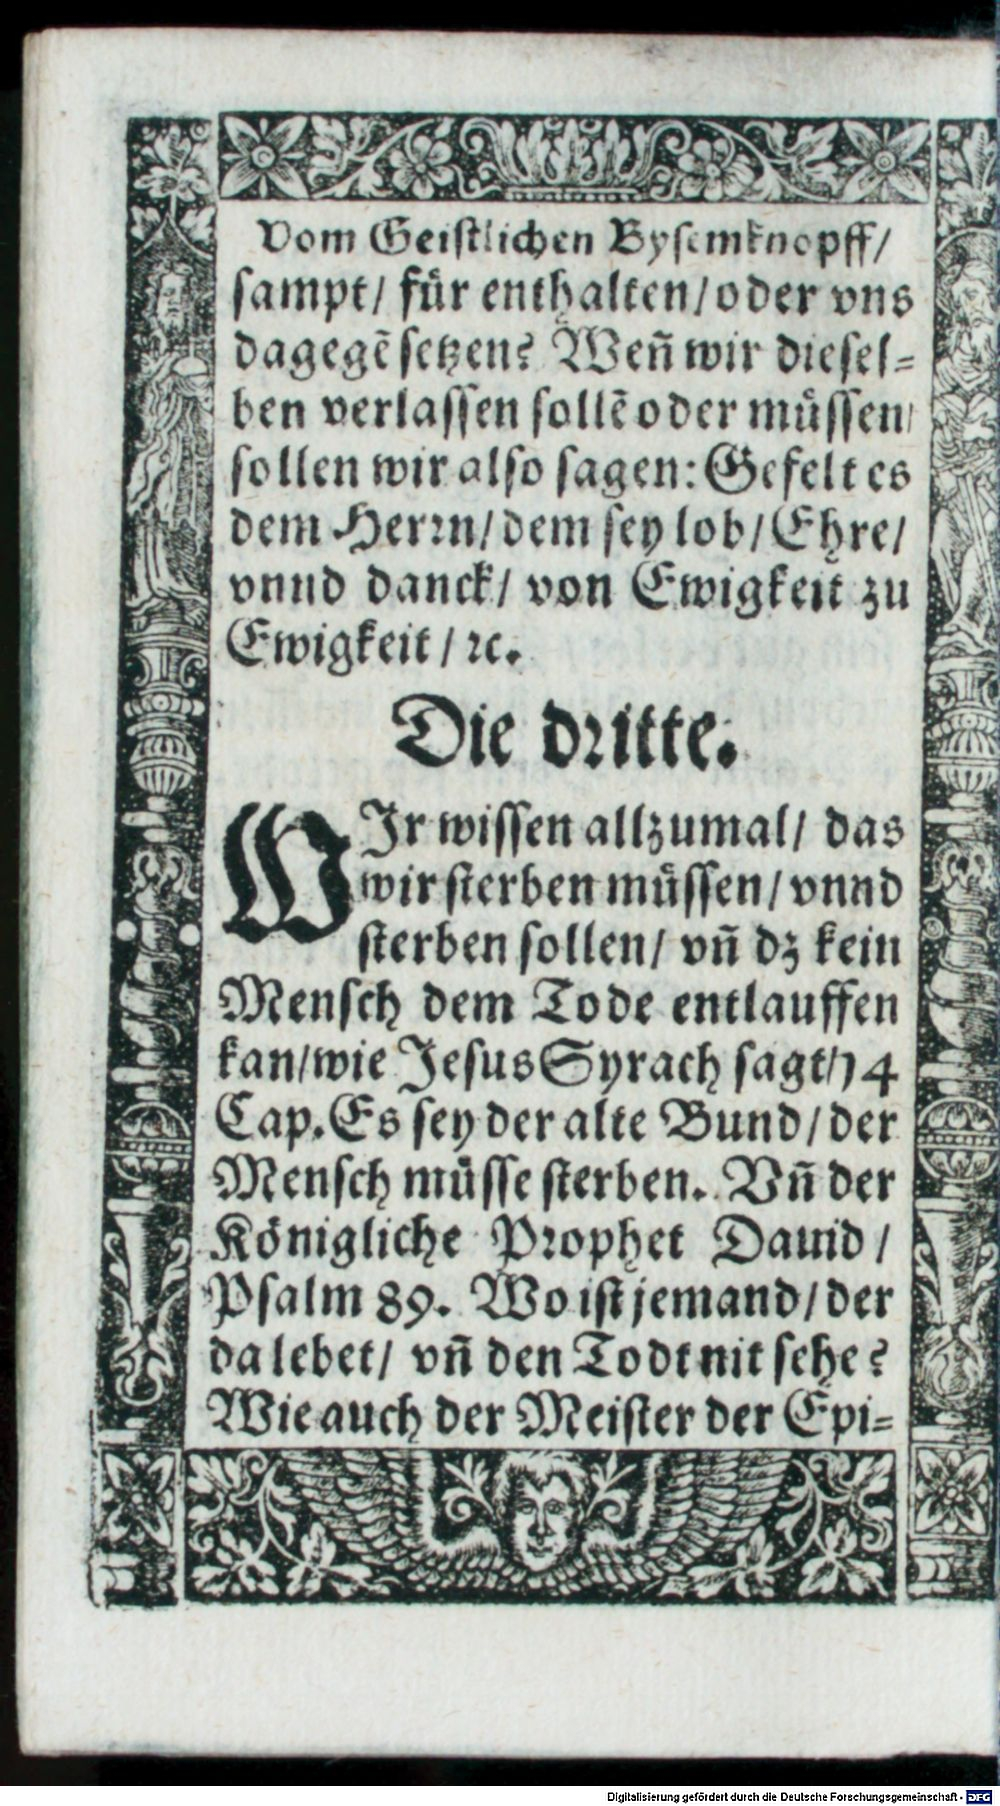 Vom Geistlichen Bysemknopff/
sampt/ für enthalten/ oder vns
dagegẽ setzen? Weñ wir diesel=
ben verlassen sollẽ oder müssen/
sollen wir also sagen: Gefelt es
dem Herrn/ dem sey lob/ Ehre/
vnnd danck/ von Ewigkeit zu
Ewigkeit/ ꝛc.
Die dritte.
WIr wissen allzumal/ das
wir sterben müssen/ vnnd
sterben sollen/ vñ dz kein
Mensch dem Tode entlauffen
kan/ wie Jesus Syrach sagt/ 14
Cap. Es sey der alte Bund/ der
Mensch müsse sterben. Vñ der
Königliche Prophet Dauid/
Psalm 89. Wo ist jemand/ der
da lebet/ vñ den Todt nit sehe?
Wie auch der Meister der Epi=
Digitalisierung gefördert durch die Deutsche Forschungsgemeinschaft - DFG